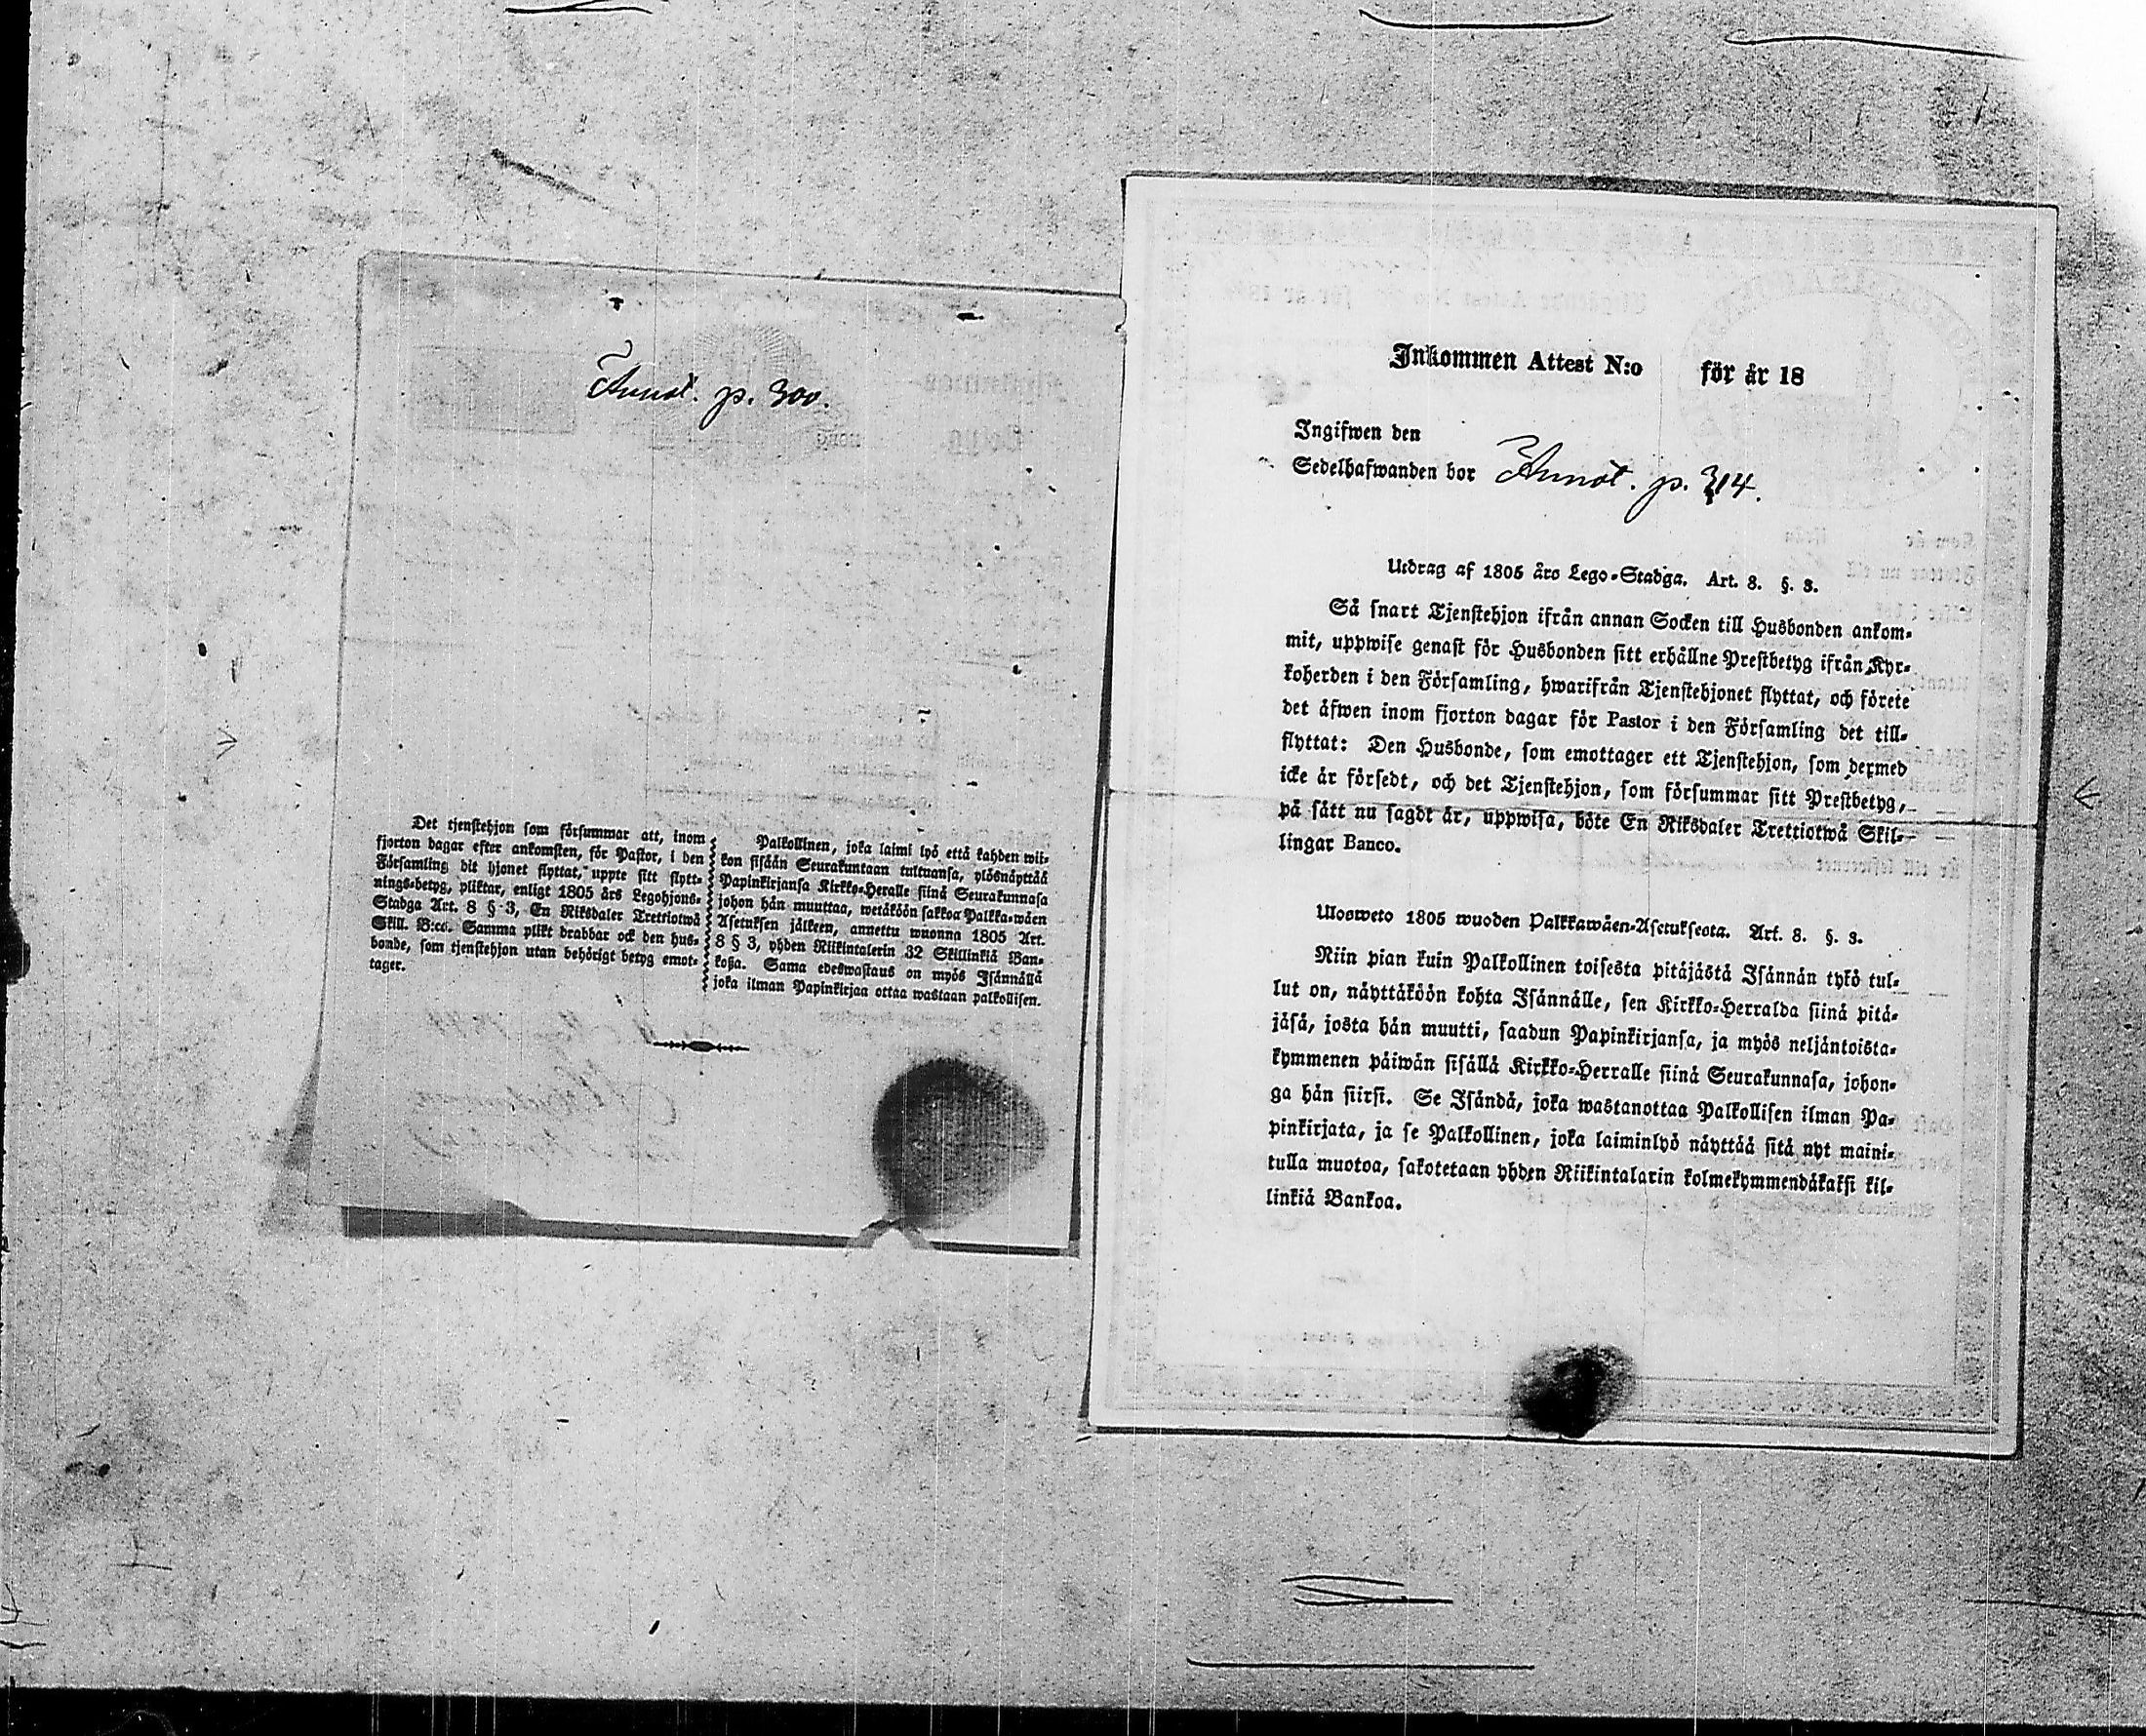 Annot. p. 300.
Det tjenstehjon som försummar att, inom
fjorton dagar efter ankomsten, för Pastor, i den
Församling dit hjonet flyttat, uppte sitt flytt-
nings-betyg, pliktar, enligt 1805 års Legohjons-
Stadga Art. 8 § 3, En Riksdaler Trettiotwå
Skill. B:co. Samma plikt drabbar ock den hus-
bonde, som tjenstehjon utan behörigt betyg emot-
tager.
Palkollinen, joka laimi lyö että kahden wii-
kon sisään Seurakuntaan tultuansa, ylösnäyttää
Papinkirjansa Kirkko-Heralle siinä Seurakunnasa
johon hän muuttaa, wetäköön sakkoa Palkka-wäen
Asetuksen jälkeen, annettu wuonna 1805 Art.
8 § 3, yhden Riikintalerin 32 Skillinkiä Ban-
koßa. Sama edeswastaus on myös Isännällä
joka ilman Papinkirjaa ottaa wastaan palkollisen.
Inkommen Attest N:o för år 18
Ingifwen den
Sedelhafwanden bor Annot. p. 314.
Utdrag af 1805 års Lego-Stadga. Art. 8. §. 3.
Så snart Tjenstehjon ifrån annan Socken till Husbonden ankom-
mit, uppwise genast för Husbonden sitt erhållne Prestbetyg ifrån Kyr-
koherden i den Församling, hwarifrån Tjenstehjonet flyttat, och förete
det äfwen inom fjorton dagar för Pastor i den Församling det till-
flyttat: Den Husbonde, som emottager ett Tjenstehjon, som dermed
icke är försedt, och det Tjenstehjon, som försummar sitt Prestbetyg,
på sätt nu sagdt är, uppwisa, böte En Riksdaler Trettiotwå Skil-
lingar Banco.
Ulosweto 1805 wuoden Palkkawäen-Asetuksesta. Art. 8. §. 3.
Niin pian kuin Palkollinen toisesta pitäjästä Isännän tykö tul-
lut on, näyttäköön kohta Isännälle, sen Kirkko-Herralda siinä pitä-
jäsä, josta hän muutti, saadun Papinkirjansa, ja myös neljäntoista-
kymmenen päiwän sisällä Kirkko-Herralle siinä Seurakunnasa, johon-
ga hän siirsi. Se Isändä, joka wastanottaa Palkollisen ilman Pa-
pinkirjata, ja se Palkollinen, joka laiminlyö näyttää sitä nyt maini-
tulla muotoa, sakotetaan yhden Riikintalarin kolmekymmendäkaksi kil-
linkiä Bankoa.